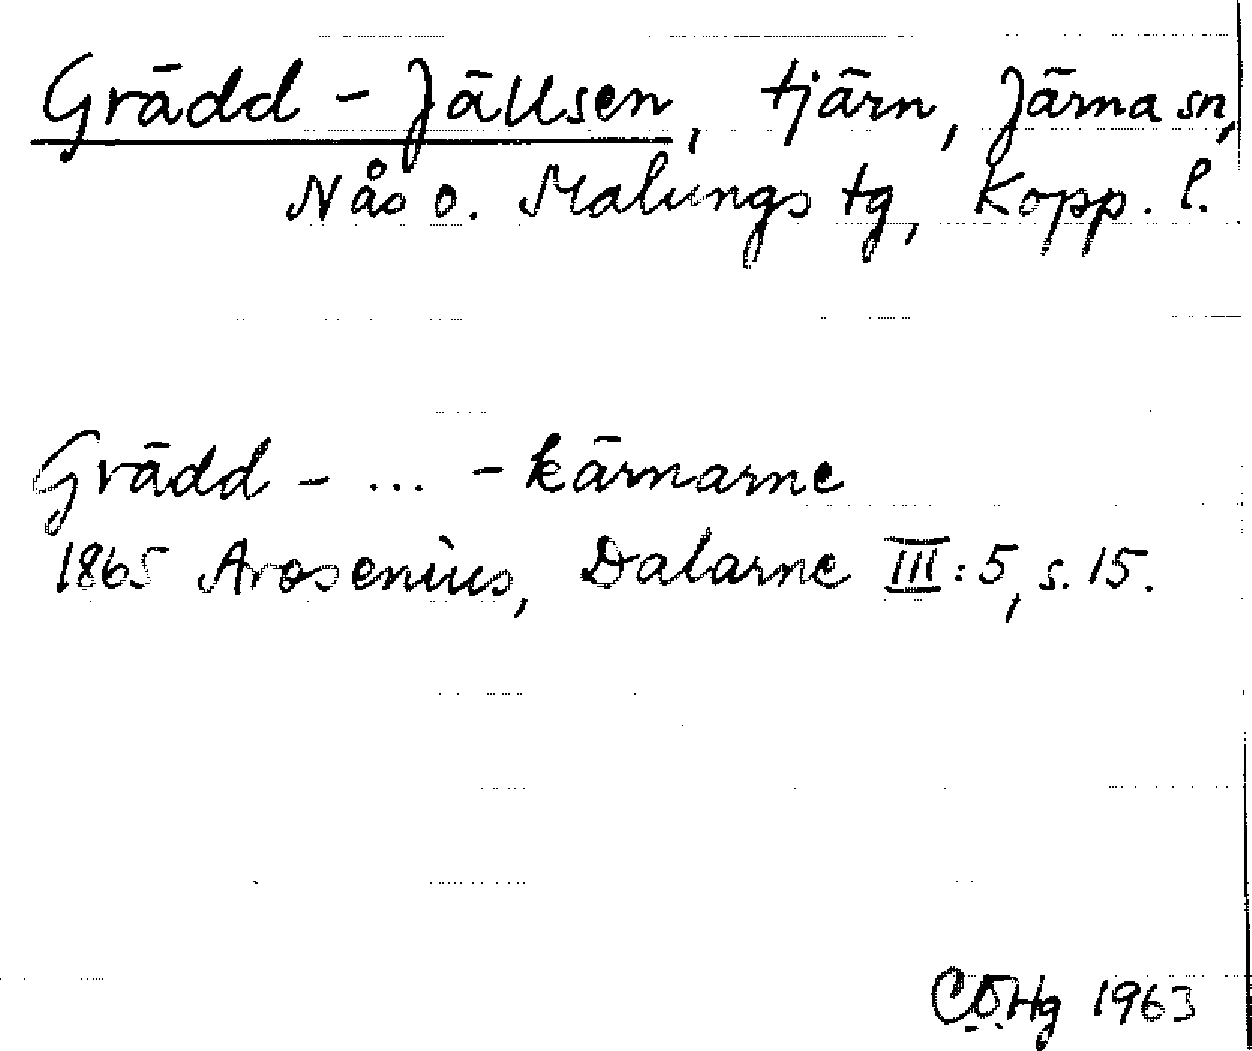 Grädd-Jällsen, tjärn, Järna sn,
Nås o. Malungs tg, Kopp. l.
Grädd- ... -kärnarne
1865 Arosenius, Dalarne III:5, s. 15.
CÖHg 1963